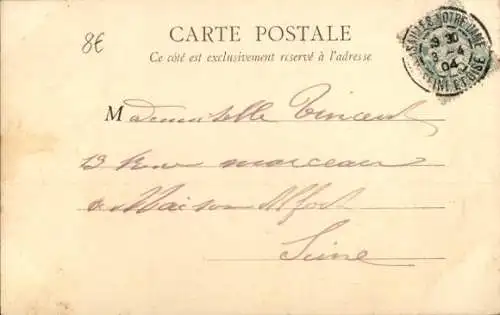 8€
CARTE POSTALE
Ce côté est exclusivement réservé à l'adresse
NOTRE DAME
3 - 4
04
SEINE ET OISE
Mademoiselle Vincent
13 Rue Marceau
a Maison Alfort
Seine